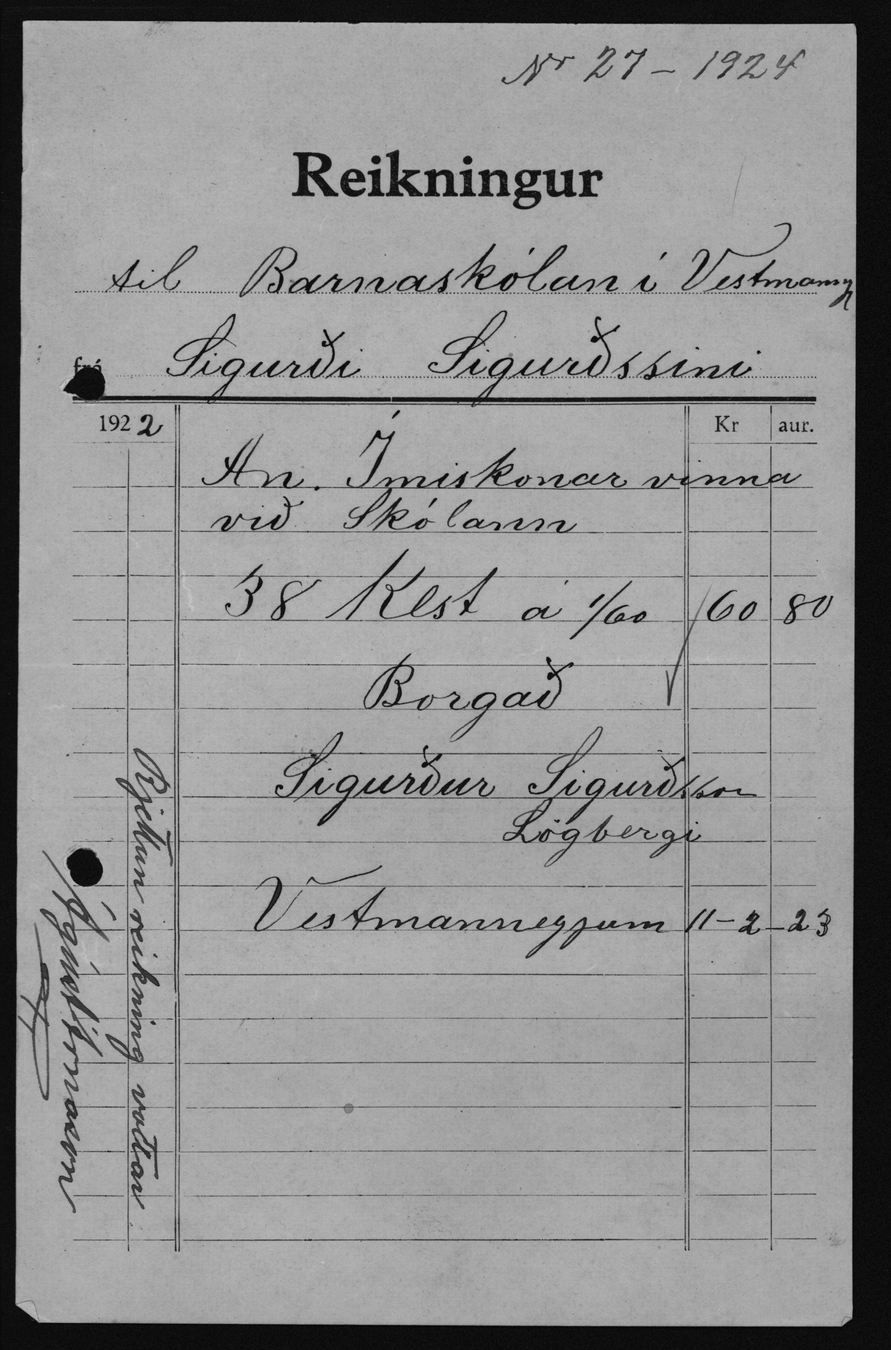 Nr 27 - 1924
Reikningur
til Barnaskólan í Vestmaney
frá Sigurði Sigurðssini
1922 Kr aur.
An. Ímiskonar vinna
við Skólann
38 Klst á 1/60 60 80
Borgað
Sigurður Sigurðsson
Lögbergi
Vestmanneyjum 11-2-23
Rjettan reikning vottar
Ágúst Árnason